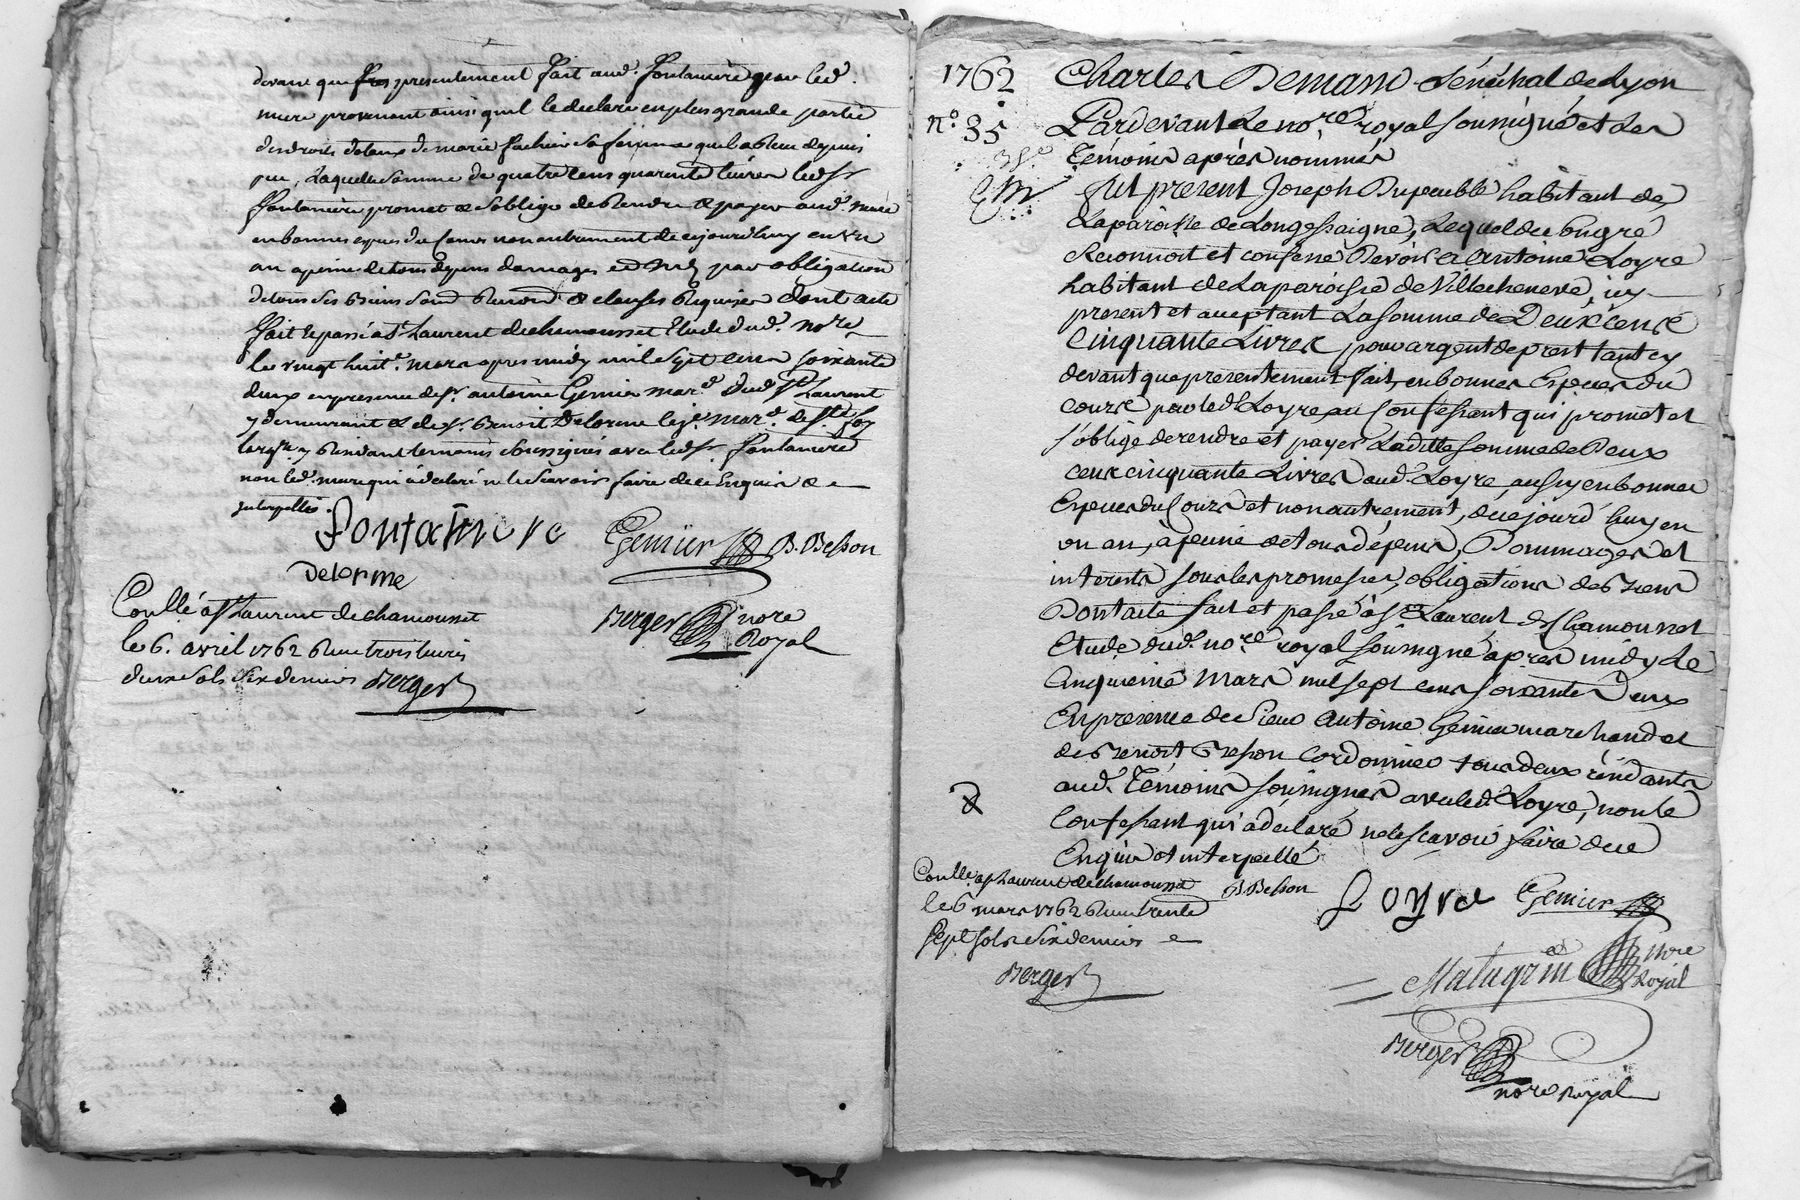 devant que fres presentement fait aud. fontaniere par led.
mure provenant ainsi quil le declare en plus grande partie
des droits dotaux de marie sa femme quil a Recu depuis
peu, Laquelle somme de quatre cens quarente livres led. Sr
fontaniere promet & soblige de Rendre & payer aud. mure
en bonnes espces du cours non autrement de cejourdhuy en un
an apeine de tous depens damages et Int. par obligation
de tous ses Biens sous Renon & clauses Requises dont acte
fait & passé a St Laurent de chamousset Etude dud. nore
le vingt huite. mars apres midy mil sept cens soixante
deux en presence de sr. antoine Genier mard. dud. St Laurent
y demeurant & de sr. Benoit Delorme le je. mard. de Ste foy
largre. y Residant temoins soussignés avec led. Sr fontaniere
non led. mure qui à declaré ne le scavoir faire de ce Enquis &
interpellés.
fontaniere Genier B. Besson
Delorme
Conllé a St Laurent de chamousset
le 6. avril 1762 Recu trois livres
deux sols six deniers Berger
Berger nore
Royal
1762 Charles Demasso Sénéchal de Lyon
n.º 35 Pardevant Le no.re royal soussigné et Les
Témoins après nommés
fut present Joseph Dupeuble habitant de
La paroisse de Longessaigne, Lequel de bon gré
Reconnoit et confesse Devoir a Antoine Loyre
habitant de La paroisse de Villecheneve, icy
present et acceptant La somme de Deux cens
Cinquante Livres pour argent de prest tant cy
devant que presentement fait, en bonnes Especes du
cours par led. Loyre au Confessant qui promet et
s'oblige de rendre et payer Laditte somme de Deux
cens cinquante Livres aud. Loyre, aussy en bonnes
Especes du Cours et non autrement, de cejourd'huy en
un an, à peine de tous dépens, Dommages et
interests sous les promesses, obligations de Biens
Dont acte fait et passé à St. Laurent de Chamousset
Etude dud. no.re royal soussigné après midy Le
Cinquieme Mars mil sept cens soixante Deux
En presence de Sieur Antoine Genier marchand et
de Benoit Besson Cordonnier tous deux résidants
aud. Témoins soussignés avec led. Loyre, non le
Confessant qui a déclaré ne le scavoir faire de ce
Enquis et interpellé
Conllé a St Laurent de chamousset
le 6 mars 1762 Recu trente
sept sols six deniers
Berger
B. Besson Loyre Genier
Mathgrin nore
Royal
Berger
nore Royal